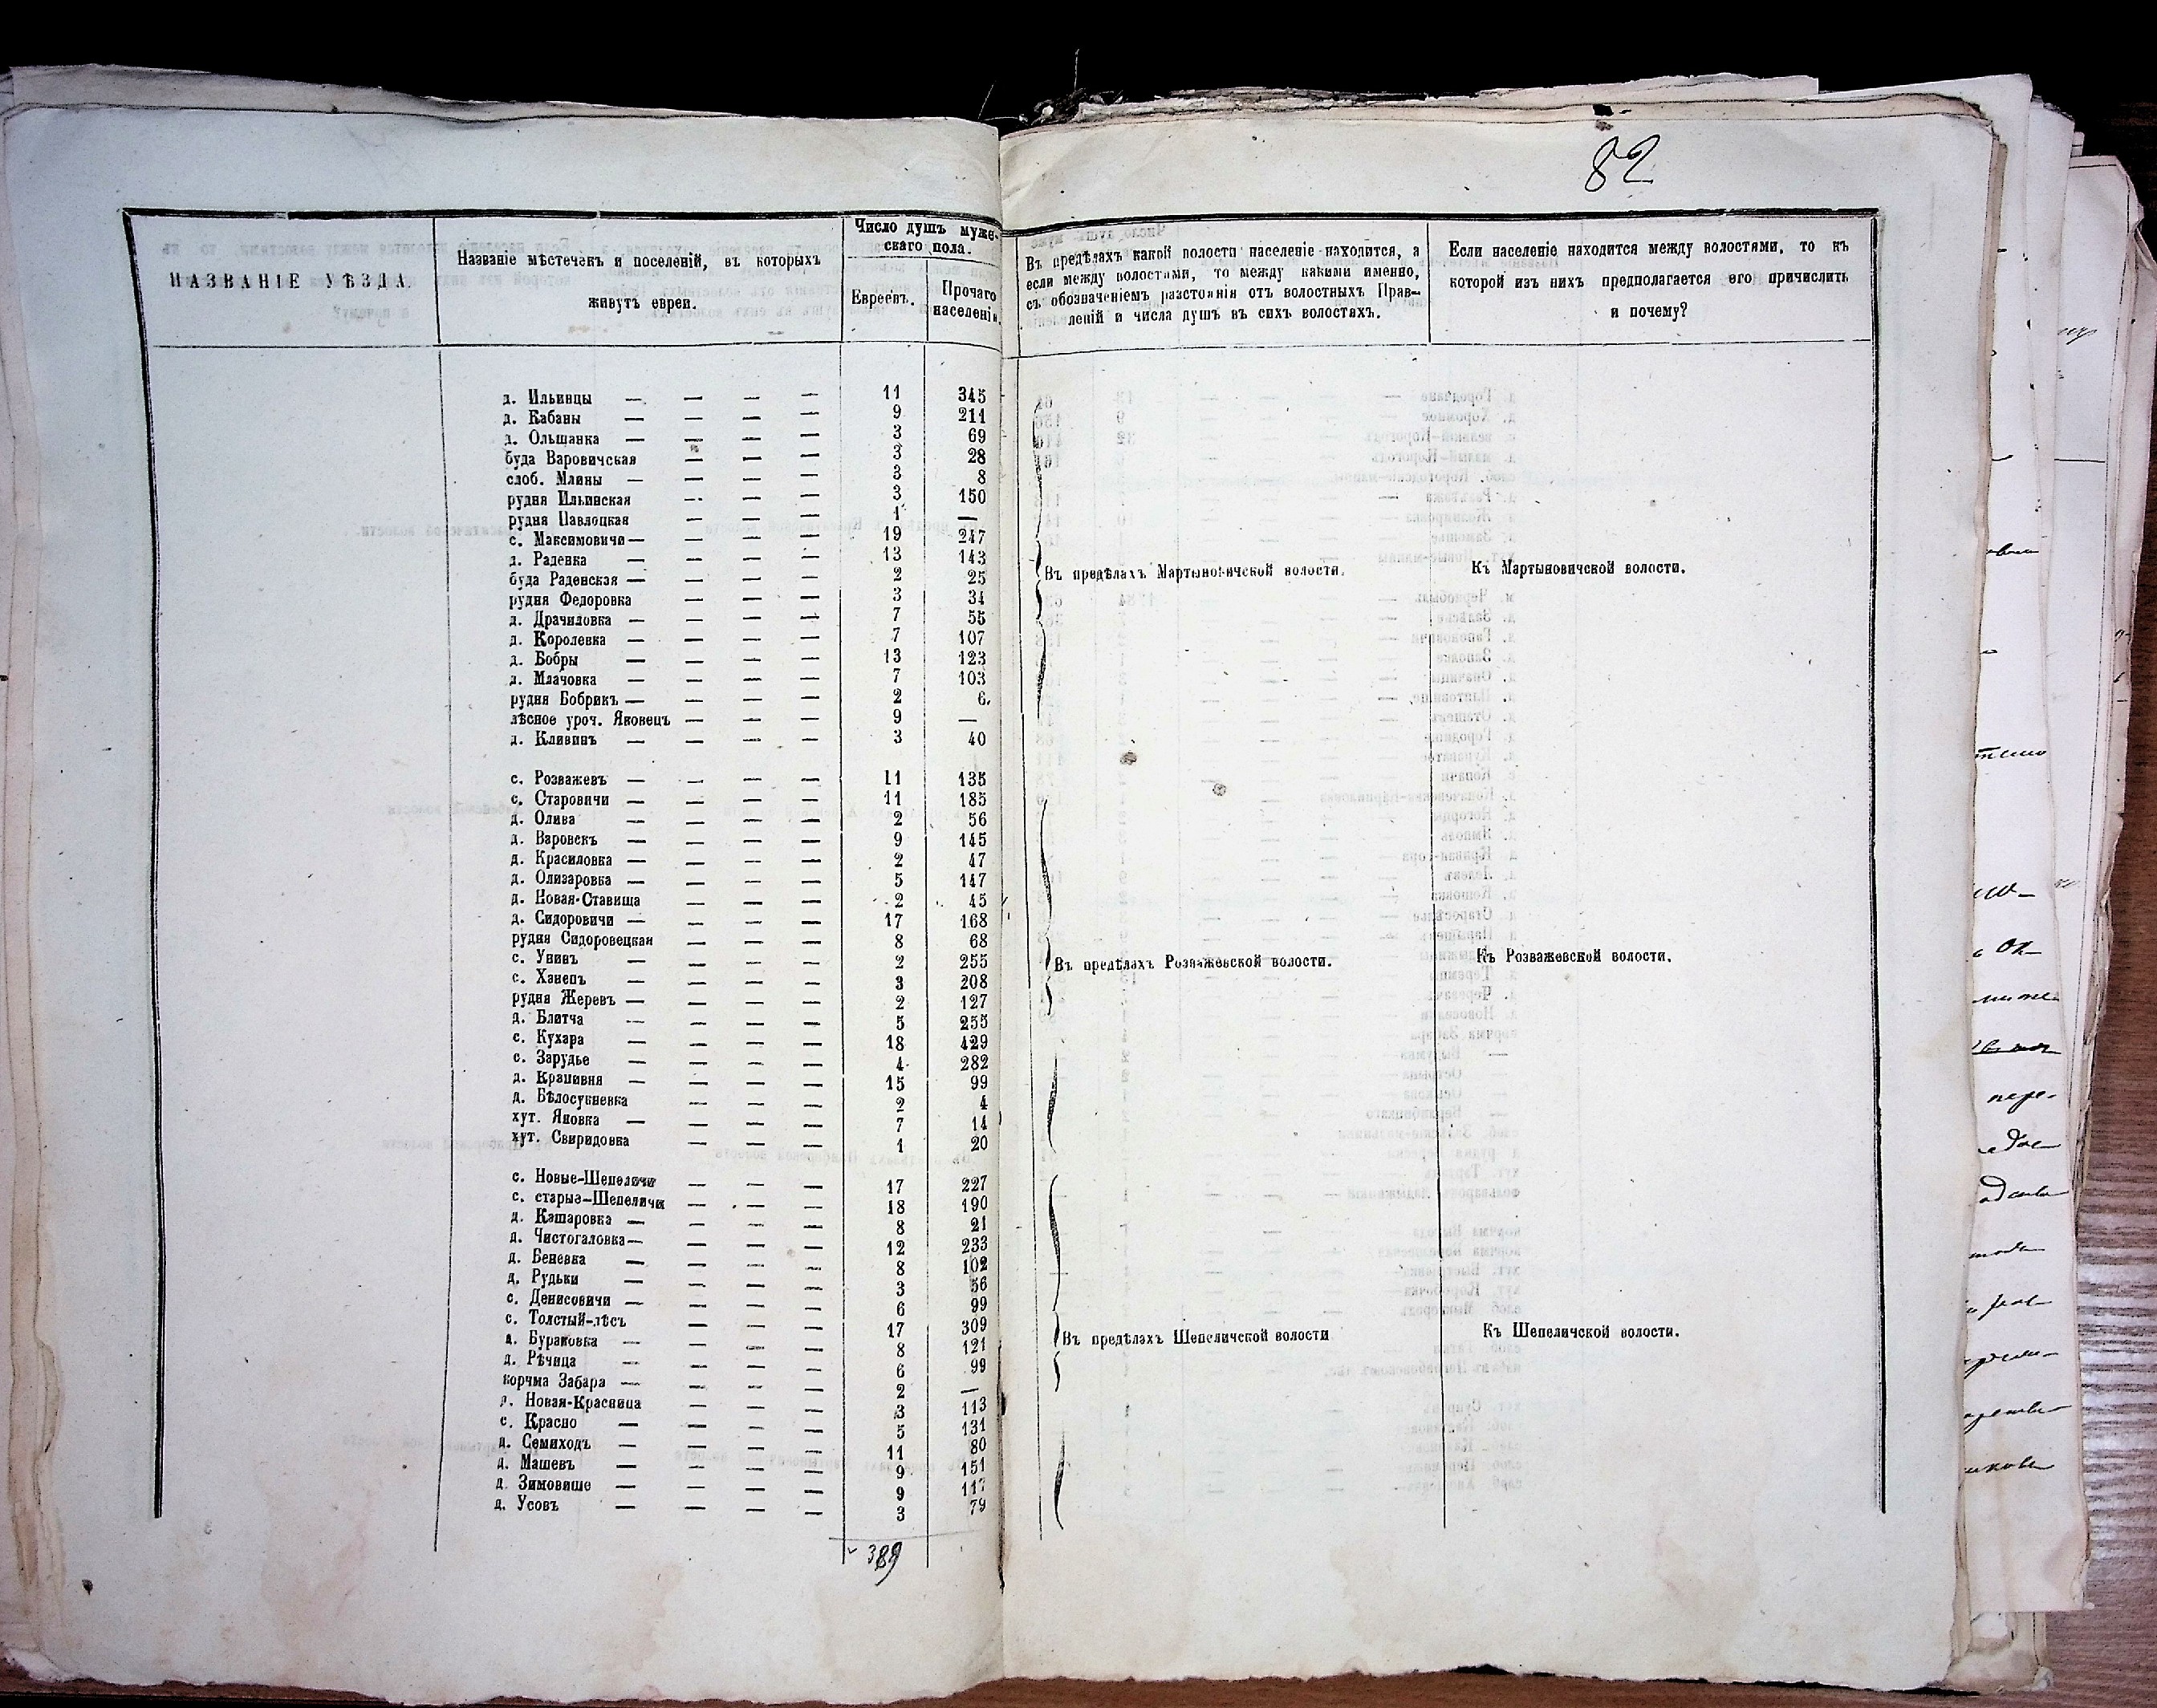 82
НАЗВАНІЕ УѢЗДА.
Названіе мѣстечекъ и поселеній, въ которыхъ
живутъ евреи.
Число душъ муже-
скаго пола.
Евреевъ.
Прочаго
населенія.
Въ предѣлахъ какой волости населеніе находится, а
если между волостями, то между какими именно,
съ обозначеніемъ разстоянія отъ волостныхъ Прав-
леній и числа душъ въ сихъ волостяхъ.
Если населеніе находится между волостями, то къ
которой изъ нихъ предполагается его причислить
и почему?
д. Ильинцы — — — — 11 345
д. Кабаны — — — — 9 211
д. Ольшанка — — — — 3 69
буда Варовичская — — — 3 28
слоб. Млины — — — — 3 8
рудня Ильинская — — — 3 150
рудня Павлоцкая — — — 1 —
с. Максимовичи — — — — 19 247
д. Раденка — — — — 13 143
буда Раденская — — — — 2 25
Въ предѣлахъ Мартыновичской волости. Къ Мартыновичской волости.
рудня Федоровка — — — 3 34
д. Драчиловка — — — — 7 55
д. Королевка — — — — 7 107
д. Бобры — — — — 13 123
д. Млачовка — — — — 7 103
рудня Бобрикъ — — — — 2 6.
лѣсное уроч. Яковецъ — — — 9 —
д. Кливинъ — — — — 3 40
с. Розважевъ — — — — 11 135
с. Старовичи — — — — 11 185
д. Олива — — — — 2 56
д. Варовскъ — — — — 9 145
д. Красиловка — — — — 2 47
д. Олизаровка — — — — 5 147
д. Новая-Ставища — — — 2 45
д. Сидоровичи — — — — 17 168
рудня Сидоровецкая — — — 8 68
с. Унивъ — — — — 2 255
Въ предѣлахъ Розважевской волости. Къ Розважевской волости.
с. Ханепъ — — — — 3 208
рудня Жеревъ — — — — 2 127
д. Блитча — — — — 5 255
с. Кухара — — — — 18 429
с. Зарудье — — — — 4 282
д. Крапивня — — — — 15 99
д. Бѣлосукневка — — — 2 4
хут. Яновка — — — — 7 14
хут. Свиридовка — — — 1 20
с. Новые-Шепеличи — — — 17 227
с. старые-Шепеличи — — — 18 190
д. Кашаровка — — — — 8 21
д. Чистогаловка — — — — 12 233
д. Беневка — — — — 8 102
д. Рудьки — — — — 3 56
с. Денисовичи — — — — 6 99
с. Толстый-лѣсъ — — — 17 309
Въ предѣлахъ Шепеличской волости Къ Шепеличской волости.
д. Бураковка — — — — 8 121
д. Рѣчица — — — — 6 99
корчма Забара — — — — 2 —
д. Новая-Красница — — — 3 113
с. Красно — — — — 5 131
д. Семиходъ — — — — 11 80
д. Машевъ — — — — 9 151
д. Зимовище — — — — 9 117
д. Усовъ — — — — 3 79
389